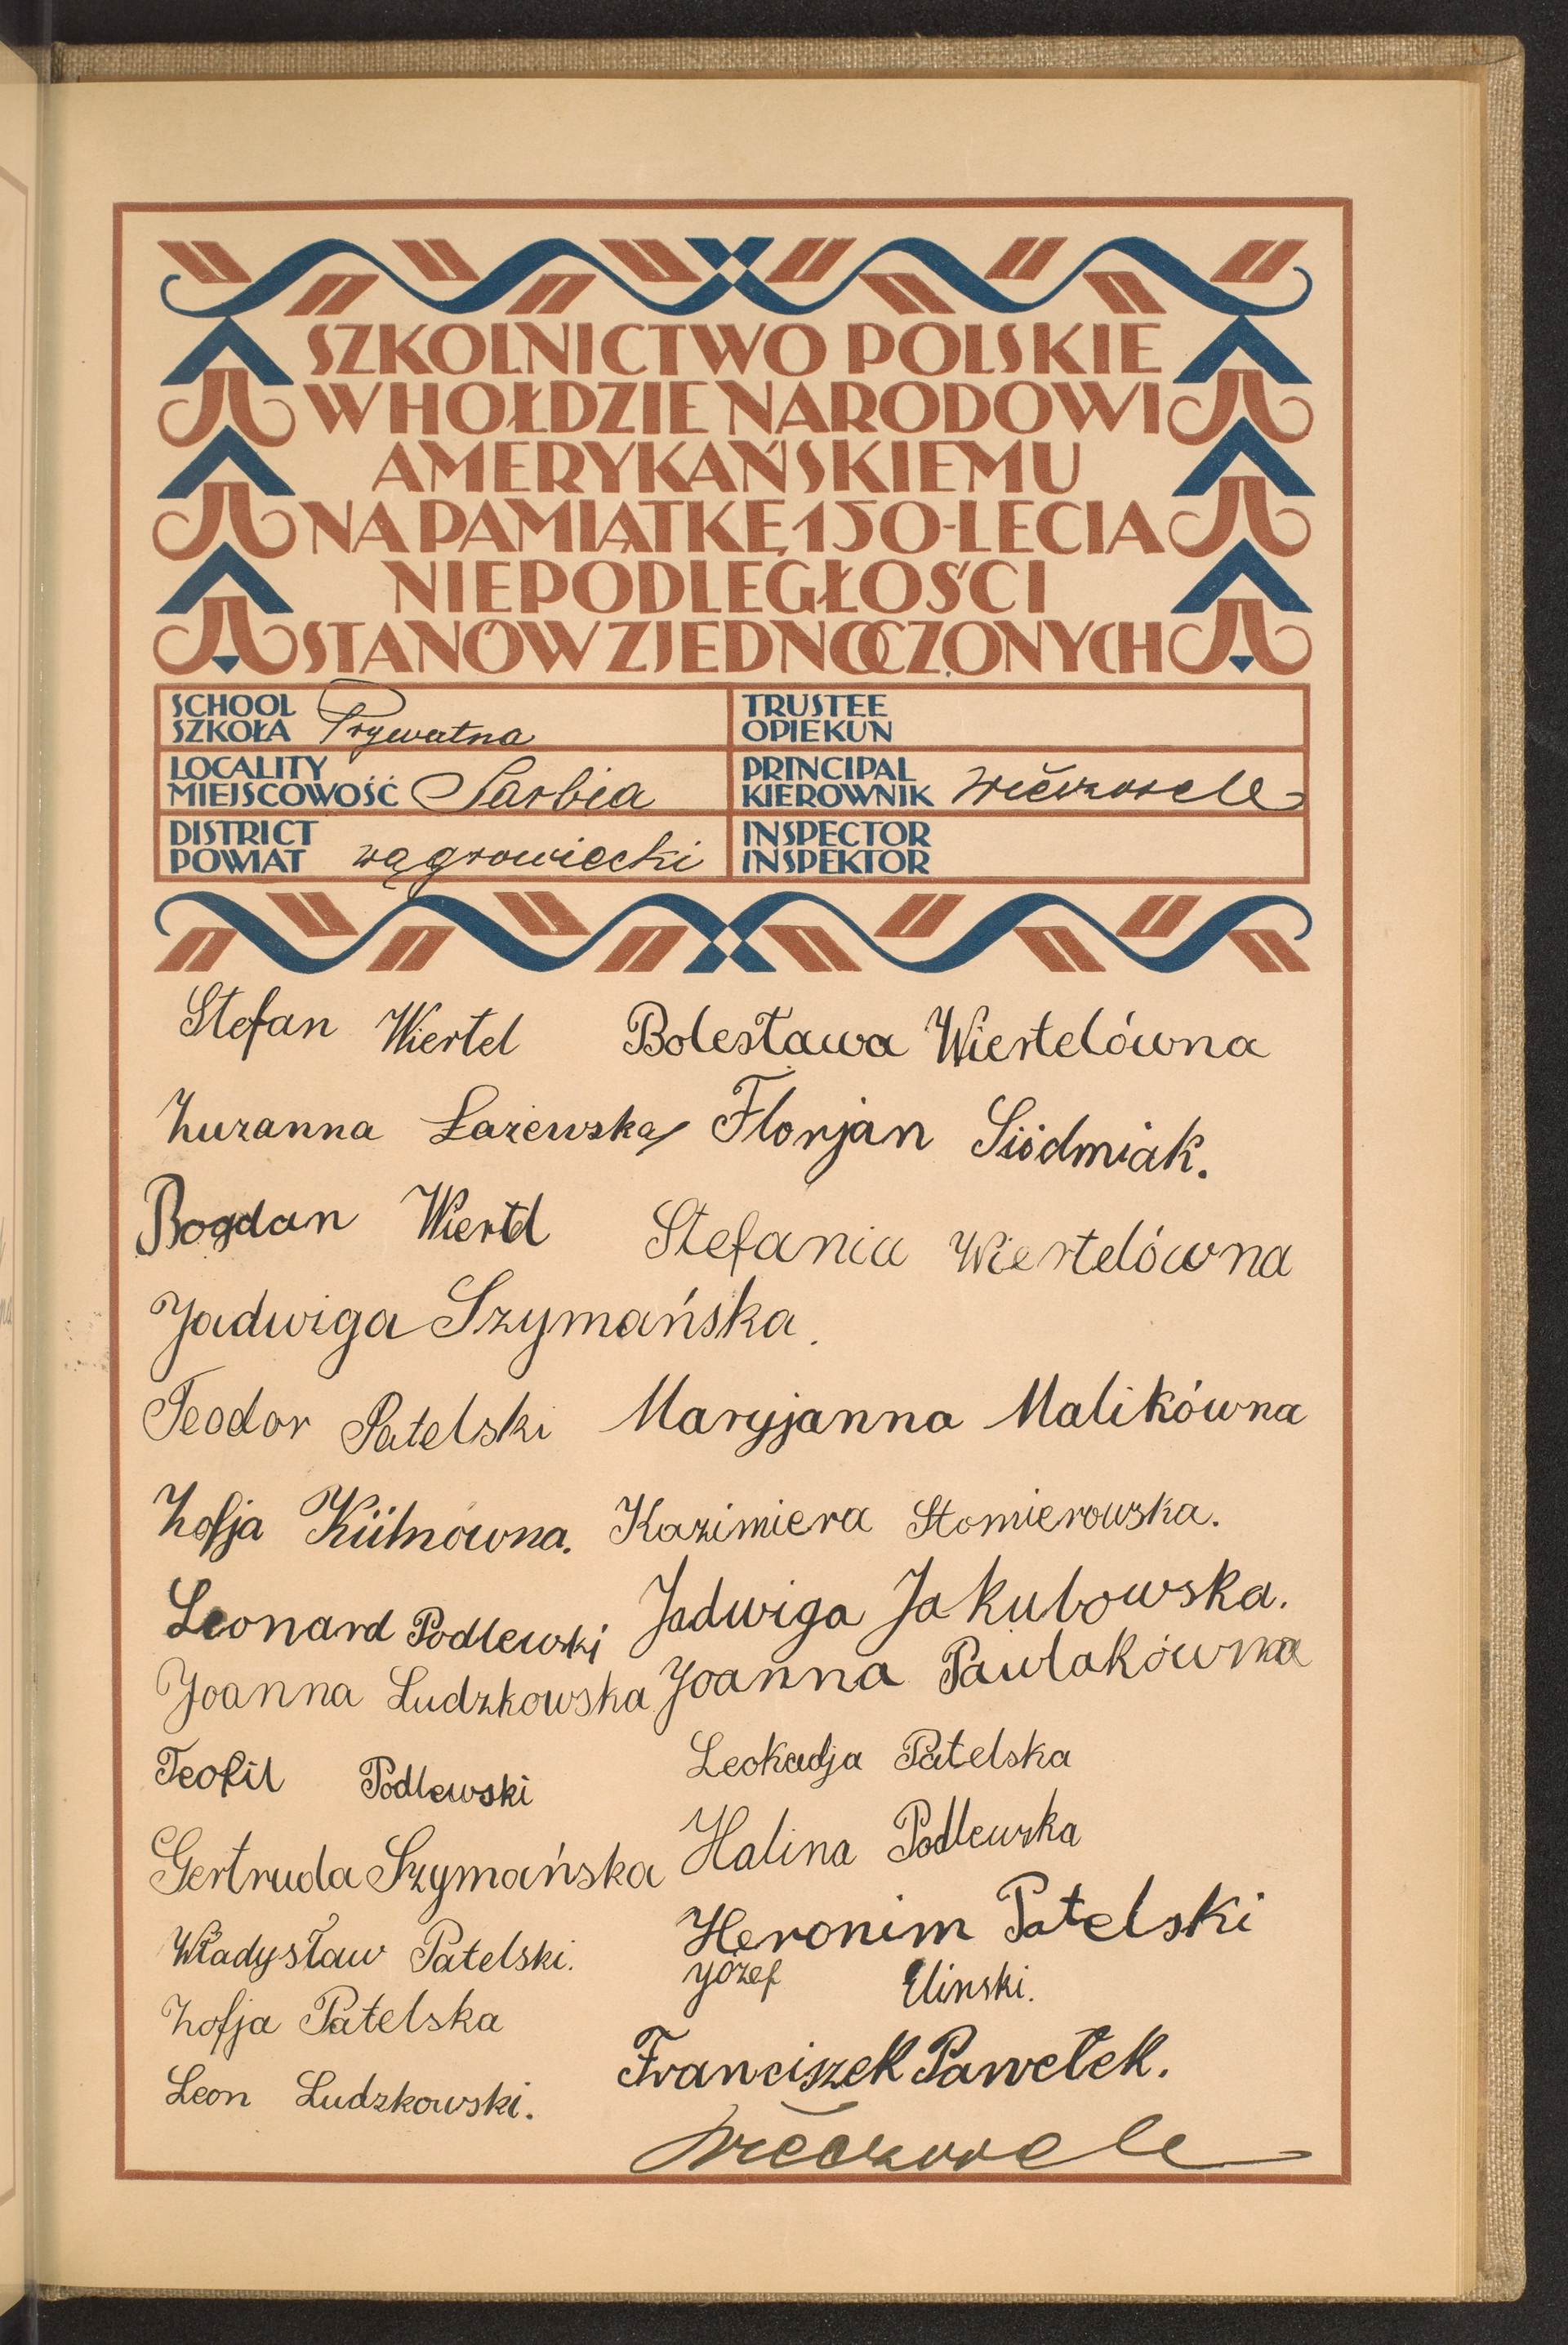 SZKOLNICTWO POLSKIE
W HOŁDZIE NARODOWI
AMERYKAŃSKIEMU
NA PAMIĄTKĘ 150-LECIA
NIEPODLEGŁOŚCI
STANÓW ZJEDNOCZONYCH
SCHOOL
SZKOŁA Prywatna
TRUSTEE
OPIEKUN
LOCALITY
MIEJSCOWOŚĆ Sarbia
PRINCIPAL
KIEROWNIK
DISTRICT
POWIAT wągrowiecki
INSPECTOR
INSPEKTOR
Stefan Wiertel Bolesława Wiertelówna
Zuzanna Łażewska Florjan Siódmiak.
Bogdan Wiertel Stefania Wiertelówna
Jadwiga Szymańska.
Teodor Patelski Maryjanna Malikówna
Zofja Kühnówna. Kazimiera Słomierowska.
Leonard Podlewski Jadwiga Jakubowska.
Joanna Ludzkowska Joanna Pawlakówna
Teofil Podlewski Leokadja Patelska
Gertruda Szymańska Halina Podlewska
Władysław Patelski. Heronim Patelski
Józef Elinski.
Zofja Patelska
Franciszek Pawełek.
Leon Ludzkowski.